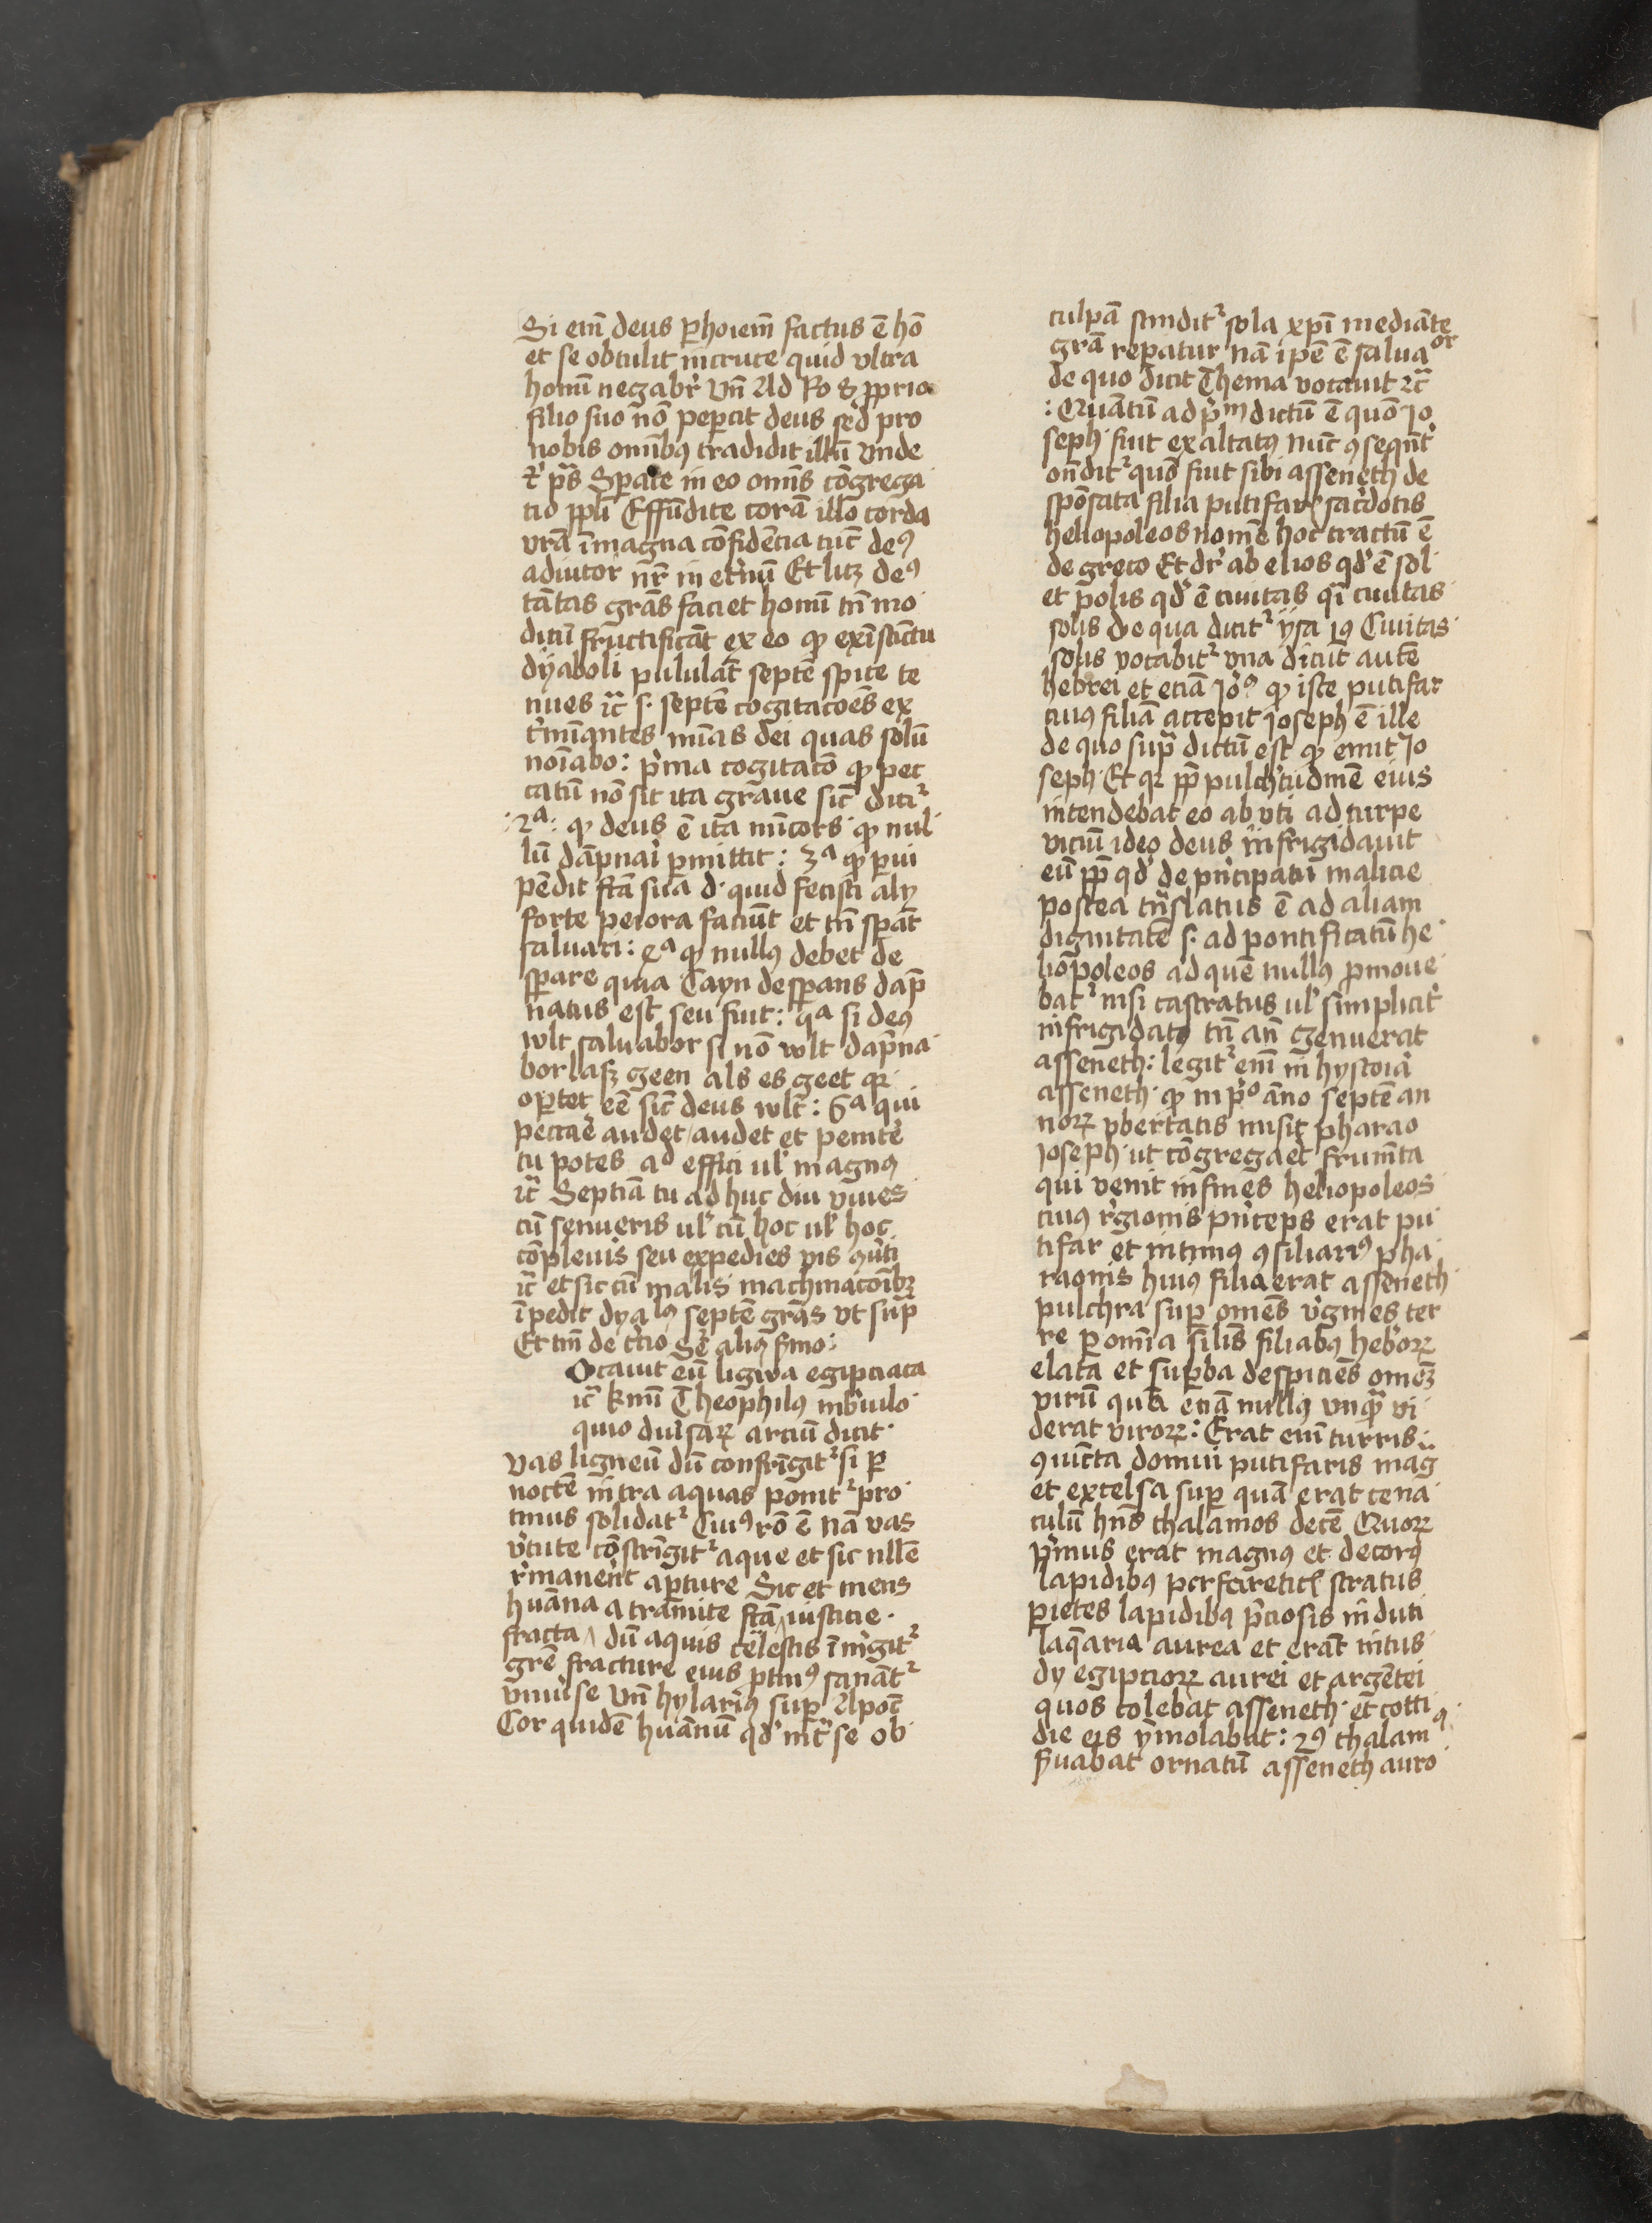 Si em̄ deus ꝑ hoiem̄ factus ē hō
et se obtulit in cruce quid vltra
homī negabr̄ Vn̄ Ad Ro 8 ꝓprio
filio suo nō peꝑcit deus sed pro
nobis omībꝯ tradidit illū Vnde
et p̄s Sꝑate in eo omīs cōgrega
tio ppl̄i Effūdite corā illo corda
vr̄a ī magna cōfidēcia tūc deꝯ
adiutor nr̄ in et̓nū Et licꝫ deꝯ
tātas grās faciet homī tn̄ mo
dicū fructificāt ex eo ꝙ ex īstīctu
dyaboli pululāt septē spice te
nues ic̄ s. septē cogitacōes ex
t̓mīantes mīas dei quas solū
noīabo: p̓ma cogitacō ꝙ pec
catū nō sit ita graue sic̄ dicit᷑
2ᵃ: ꝙ deus ē ita mīcors ꝙ nul
lū dāpnari ꝑmittit: 3ᵃ ꝙ ꝑui
pēdit fc̄a sua d. quid fecisti alij
forte peiora faciūt et tn̄ sꝑāt
saluari: 4ᵃ ꝙ nullꝯ debet de
sꝑare quia Cayn desꝑans dāp
natus est seu fuit: 5ᵃ si deꝯ
wlt saluabor si nō wlt dāpna
bor laß geen als es geet qꝛ
oꝑtet eē sic̄ deus wlt: 6ᵃ qui
peccare audet / audet et penite̓
tu potes ad effici ul̓ magnꝯ
ic̄ Septīa tu ad huc diu viues
cū senueris ul̓ cū hoc ul̓ hoc
cōpleuis seu expedies
ic̄ et sic cū malis machinacōibꝫ
īpedit dyaꝯ septē grās vt supͣ
Et tm̄ de t̓cio Seͬ aliꝯ s̓mo:
Ocauit eū ligwa egipciaca
ic̄ km̄ Theophilꝯ in breuilo
quio diuersaꝝ arciū dicit
Vas ligneū dū confrīgit᷑ si ꝑ
noctē in tra aquas ponit᷑ pro
tinus solidat᷑ Cuiꝯ rō ē nā vas
v̓tute cōstrīgit᷑ aque et sic nll̄e
r̓manent aꝑture Sic et mens
hvāna a tramite
fracta / dū aquis celestis
fracture eius ꝓtinꝯ sanāt᷑
vniu̓se Vn̄ hylariꝯ suꝑ Apoc̄
Cor quidē hvānū qd̓ int̓ se ob
culpā scindit᷑ sola xp̄i mediāte
grā reꝑatur nā ipē ē saluaᵒʳ
de quo dicit Thema vocauit ⁊c̄
: Quātū ad p̓m dictū ē quō Jo
seph fuit exaltatꝯ nūc ꝯseqn̄t̓
on̄dit᷑ quō fuit sibi asseneth de
spōsata filia putifar sac̓dotis
heliopoleos nomē hoc tractū ē
de greco Et dr̄ ab elios qd̓ ē sol
et polis qd̓ ē ciuitas qͣi ciuitas
solis de qua dicit᷑ ysa 19 Ciuitas
solis vocabit᷑ vna dicūt autē
hebrei et eciā Jeͦꝯ ꝙ iste putifar
cuiꝯ filiā accepit joseph ē ille
de quo supͣ dictū est ꝙ emit Jo
seph Et qꝛ ꝓp pulch̓tudinē eius
intendebat eo ab vti ad turpe
viciū ideo deus infrigidauit
eū ꝓp qd̓ de pͥncipatū malicie
postea tn̄slatus ē ad aliam
dignitatē s. ad pontificatū he
liopoleos ad quē nullꝯ ꝓmoue
bat᷑ nisi castratus ul̓ simplicit̓
infrigidatꝯ tn̄ an̄ genuerat
asseneth: legit᷑ em̄ in hystoria
asseneth ꝙ in p̓ᵒ āno septē an
noꝝ vbertatis misit pharao
joseph ut cōgregaret frumēta
qui venit in fines heliopoleos
cuiꝯ r̓gionis pͥnceps erat pu
tifar et intimꝯ ꝯsiliariꝯ pha
raonis huiꝯ filia erat asseneth
pulchra suꝑ omēs v̓gines ter
re ꝑ omīa silīs filiabꝯ heb̓oꝝ
elata et suꝑba despiciēs omēꝫ
virū quā eciā nullꝯ vnqͣꝫ vi
derat viroꝝ: Erat em̄ turris
ꝯiūcta domui putifaris mag
et excelsa suꝑ quā erat cena
culū hn̄s thalamos decē Quoꝝ
pͥmus erat magnꝯ et decorꝯ
lapidibꝯ stratus
ꝑietes lapidibꝯ p̓ciosis induti
laq̄aria aurea et erāt intus
dy egipcioꝝ aurei et argētei
quos colebat asseneth et cotti
die eis ymolabat: 2ꝯ thalamꝯ
s̓uabat ornatū asseneth auro